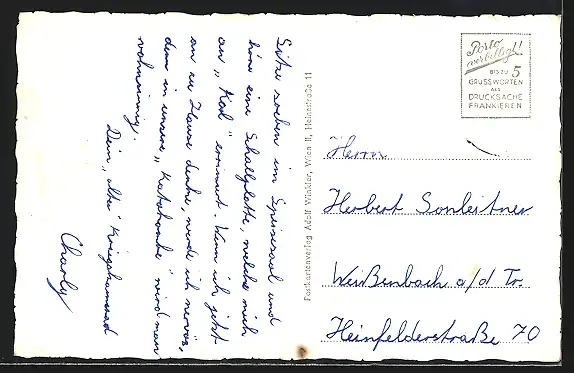 Sitze soeben im Speisesaal und
höre eine Schallplatte, welche mich
an „Karl" erinnert. Wenn ich jetzt
an zu Hause denke, werde ich nervös,
denn in unserer „Katakombe" wird man
wahnsinnig.
Dein „alter" Kriegskamerad
Charly
Postkartenverlag Adolf Winkler, Wien II, Heinestraße 11
Porto
verbilligt!
BIS ZU 5
GRUSSWORTEN
ALS
DRUCKSACHE
FRANKIEREN
Herrn
Herbert Sonleitner
Weißenbach a/d Tr.
Heinfelderstraße 70